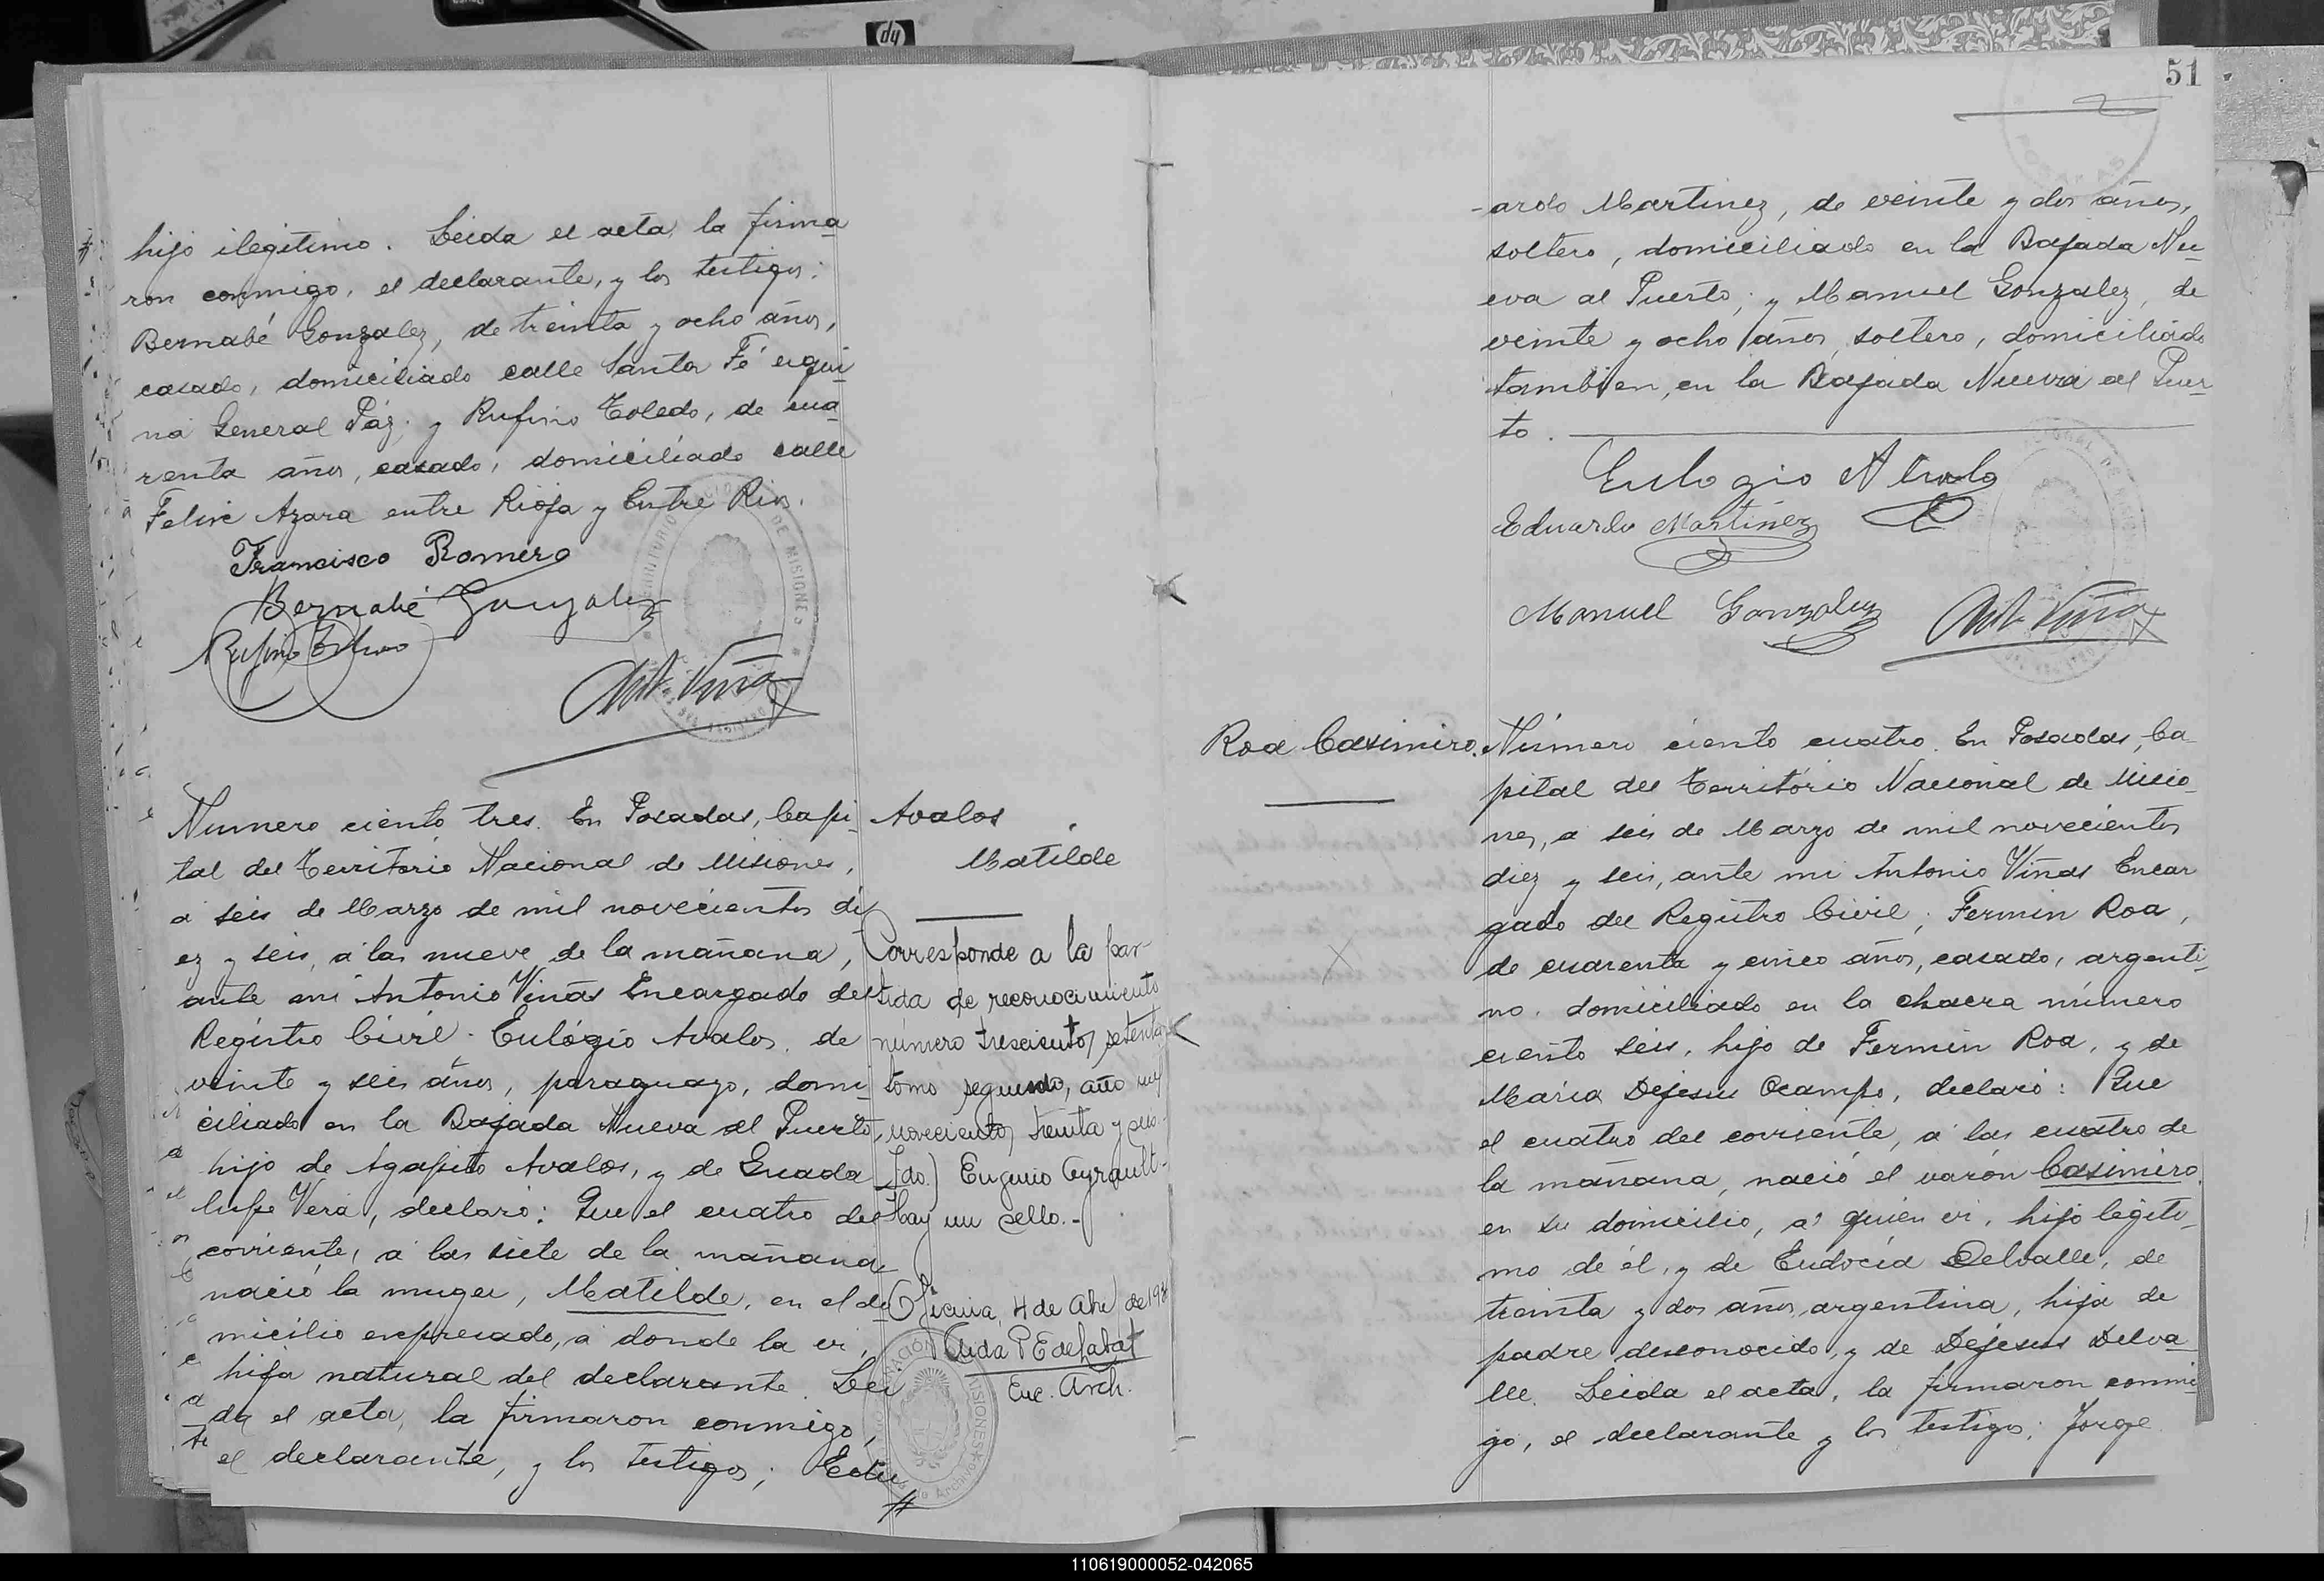 hijo ilegitimo. Leida el acta, la firma
ron conmigo, el declarante, y los testigos:
Bernabé Gonzalez, de treinta y ocho años,
casado, domiciliado calle Santa Fé esqui
na General Páz; y Rufino Toledo, de cua
renta años, casado, domiciliado calle
Felix Azara entre Rioja y Entre Rios.
Francisco Romero
Bernabé Gonzalez
Rufino Toledo
Ant. Viña
Numero ciento tres. En Posadas, Capi
tal del Territorio Nacional de Misiones,
á seis de Marzo de mil novecientos di
ez y seis, á las nueve de la mañana,
ante mi Antonio Viñas Encargado del
Registro Civil. Eulógio Avalos, de
veinte y seis años, paraguayo, domi
ciliado en la Bajada Nueva al Puerto,
hijo de Agapito Avalos, y de Guada
lupe Vera, declaró: Que el cuatro del
corriente, á las siete de la mañana
nació la muger, Matilde, en el do
micilio expresado, á donde la vi,
hija natural del declarante. Lei
da el acta, la firmaron conmigo,
el declarante, y los testigos; Edu
Avalos
Matilde
Corresponde a la par
tida de reconocimiento
número trescientos setenta
tomo segundo, año mil
novecientos treinta y
Fdo.) Eugenio Ayrault-
Hay un sello.-
Oficina, 4 de Abril de 19
Aida P E de Labat
Enc. Arch.
51
-ardo Martinez, de veinte y dos años,
soltero, domiciliado en la Bajada Nu
eva al Puerto; y Manuel Gonzalez, de
veinte y ocho años, soltero, domiciliado
tambien, en la Bajada Nueva al Puer
to.
Eulogio Avalo
Eduardo Martinez
Manuel Gonzalez
Ant. Viña
Roa Casimiro.
Número ciento cuatro. En Posadas, Ca
pital del Territorio Nacional de Misio
nes, á seis de Marzo de mil novecientos
diez y seis, ante mi Antonio Viñas Encar
gado del Registro Civil; Fermin Roa,
de cuarenta y cinco años, casado, argenti
no. domiciliado en la chacra número
ciento seis, hijo de Fermin Roa, y de
Maria Dejesus Ocampo, declaró: Que
el cuatro del corriente, á las cuatro de
la mañana, nació el varón Casimiro
en su domicilio, á quien vi, hijo legiti
mo de él, y de Eudocia Delvalle, de
treinta y dos años, argentina, hija de
padre desconocido, y de Dejesus Delva
lle. Leida el acta, la firmaron conmi
go, el declarante y los testigos; Jorge
110619000052-042065